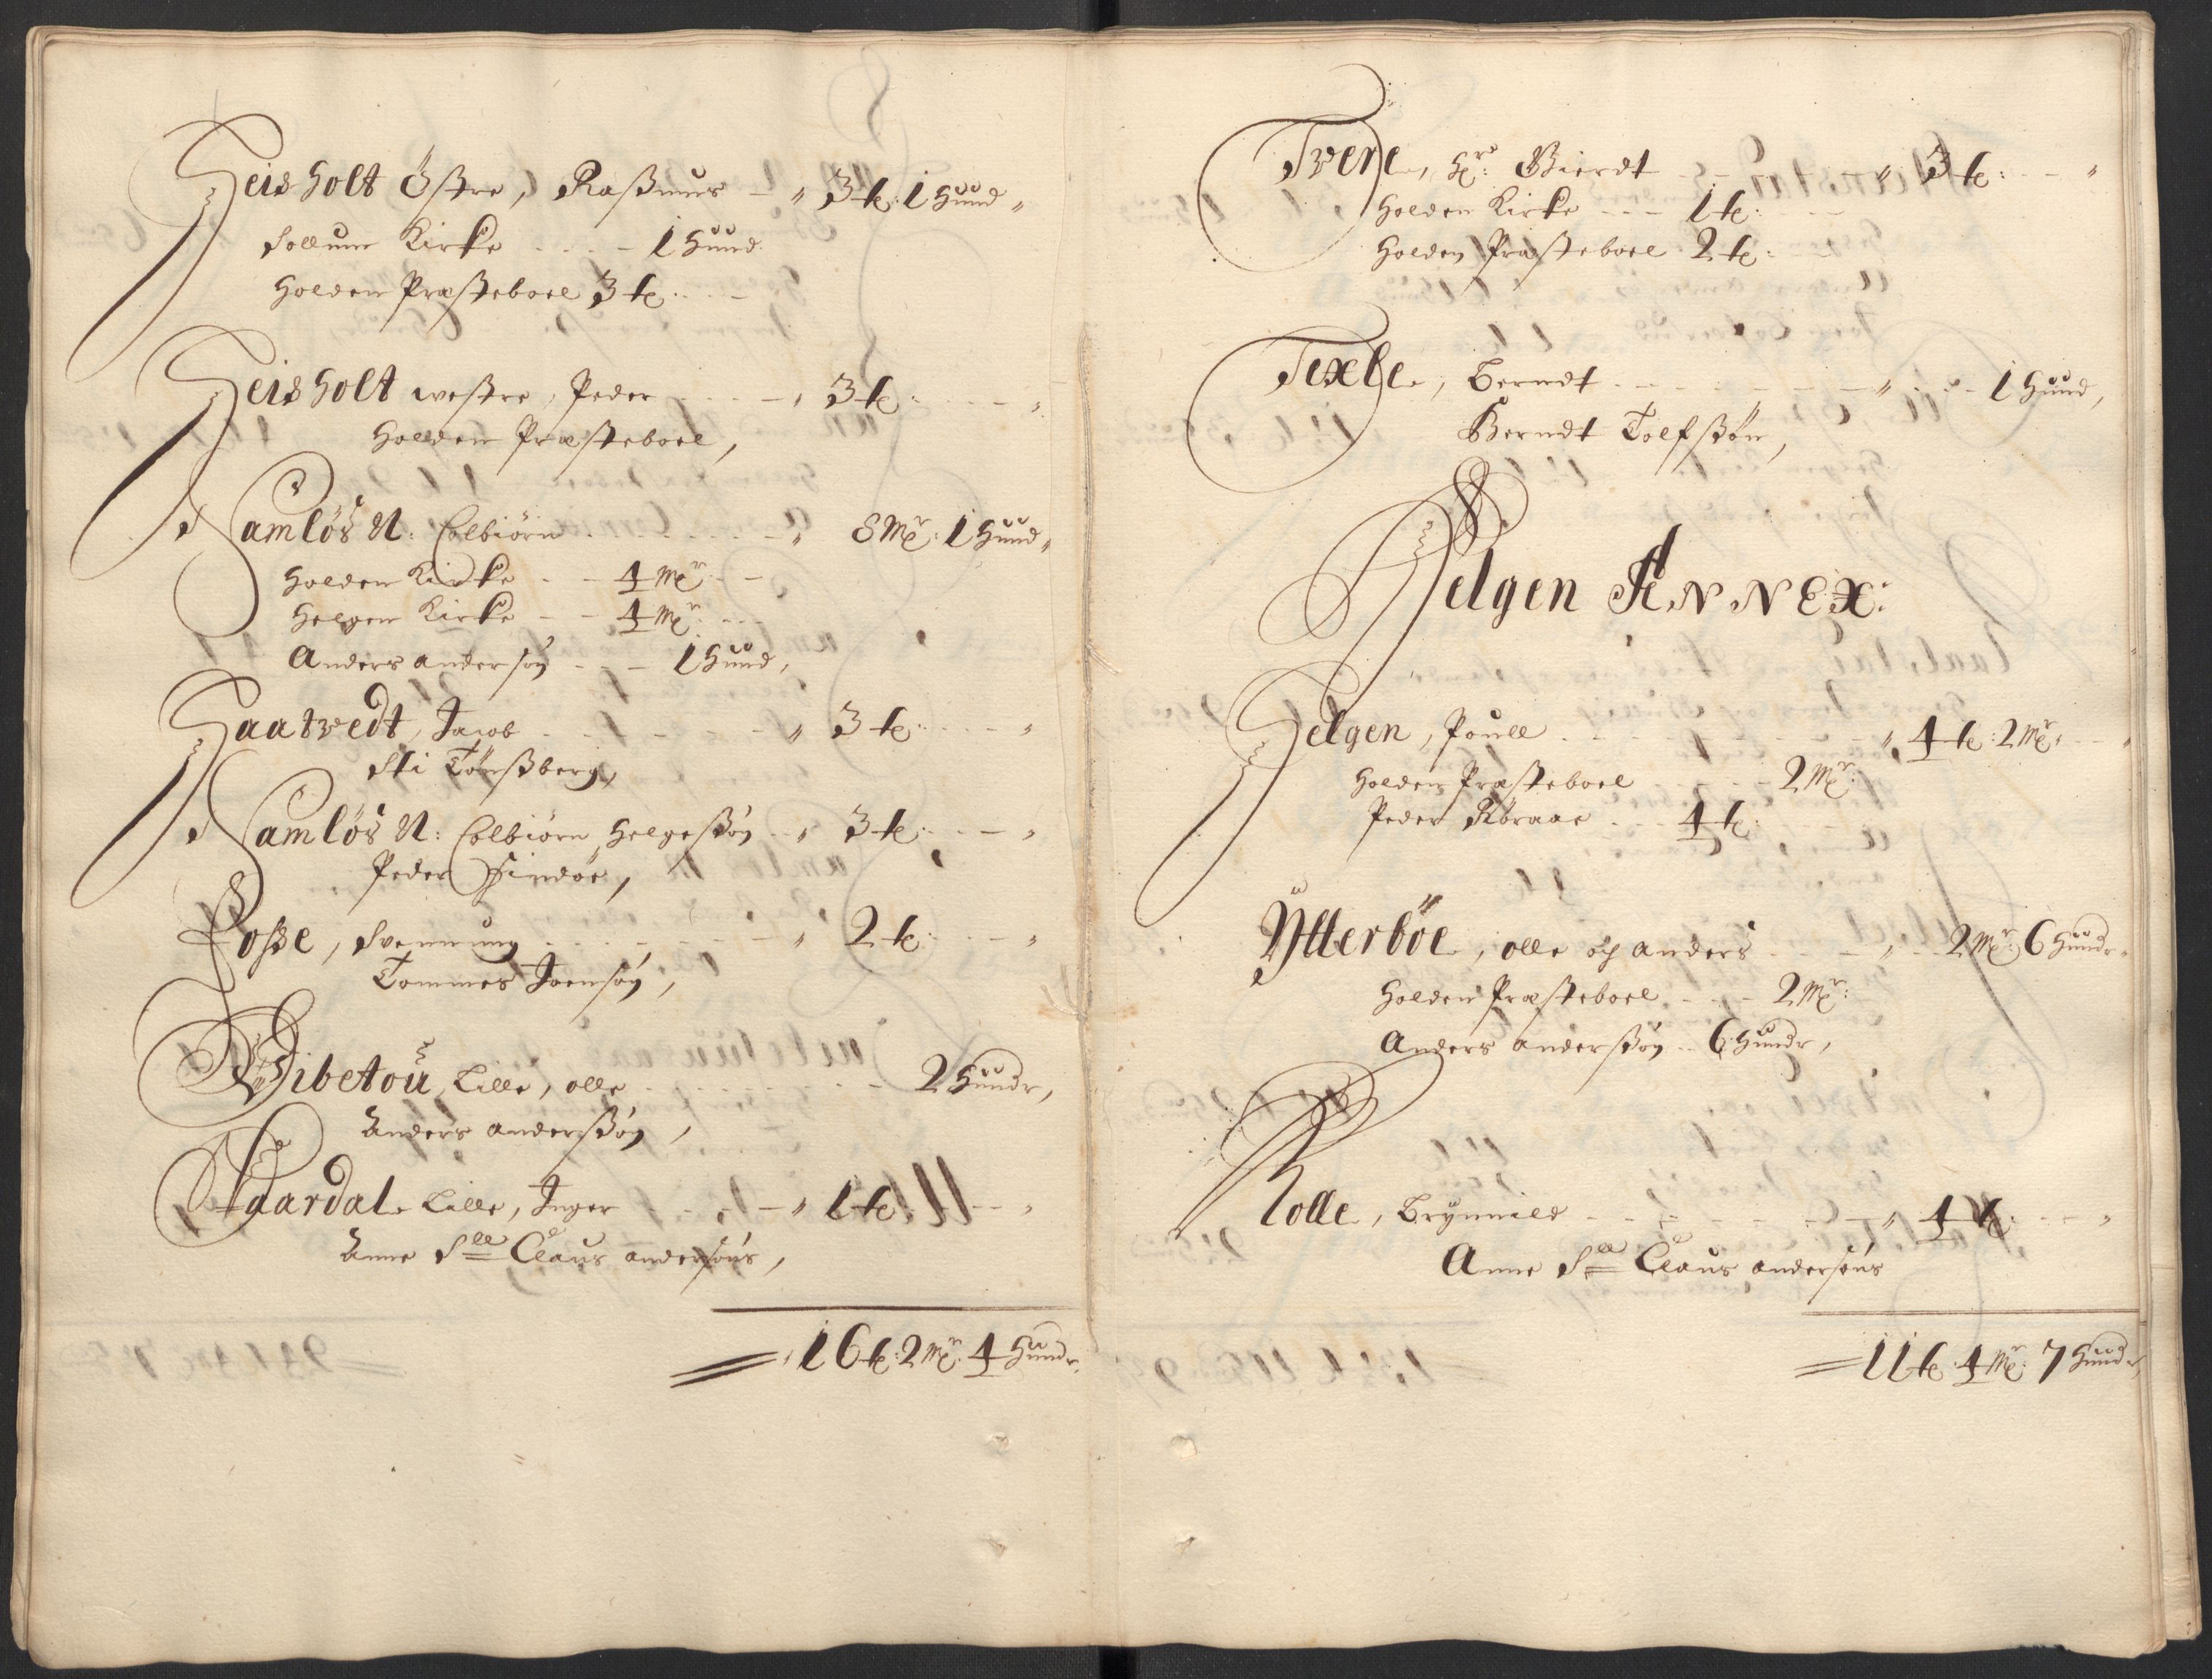 Heisholt Östre, Raßmus - " 3 ℔: 1 Huud "
Sollum Kirke - - - - 1 Huud:
Holden Præsteboel 3 ℔: - - -
Heisholt westre, Peder - - - - " 3 ℔: - - - "
Hollden Præsteboel,
Namlös N: Colbiörn - - - - " 8 Mr: 1 Huud "
Holden Kirke - - 4 Mr: - -
Helgen Kirke - - 4 Mr: - - -
Anders andersøn - - - 1 Huud,
Haatvedt, Jacob - - - - - " 3 ℔: - - - "
Sti Tönßberg,
Namlös N: Colbiörn Helgeßøn - " 3 ℔: - - - "
Peder
Foße, Svennung - - - - - " 2 ℔: - - - "
Tommes Joensøn,
Vibetou Lille, olle - - - - - - 2 Hundr,
Anders anderßøn,
Aardal Lille, Inger - - - " 1 ℔: - - - "
Anne Sll Claus andersøns,
16 ℔: 2 Mr: 4 Hundr.
Tvere, Hr: Bierdt - - - " 3 ℔: - - - "
Holden Kirke - - - 1 ℔: - - -
Holden Præsteboel 2 ℔:
Texle, Berndt - - - - - - " - - - 1 Huud,
Berndt Tolfßøn,
Helgen ANNEX:
Helgen, Poull - - - - - - " 4 ℔: 2 Mr: - - "
Holden Præsteboel - - - - 2 Mr:
Peder Røraae - - - 4 ℔: - - -
Ytterböe, olle og anders - - - " - - 2 Mr: 6 Hundr.
Holden Præsteboel - - - 2 Mr:
Anders anderßøn - - 6 Hundr,
Rolle, Brynnild - - - - - - " 4 ℔: - - - "
Anne Sll Claus andersøns
11 ℔ 4 Mr: 7 Hundr,